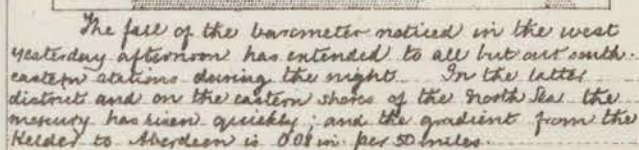 The fall of the barometer noticed in the west
yesterday afternoon has extended to all but our south-
eastern stations during the night. In the latter
district and on the eastern shores of the North Sea the
mercury has risen quickly; and the gradient from the
Helder to Aberdeen is 0.08 in. per 50 miles.